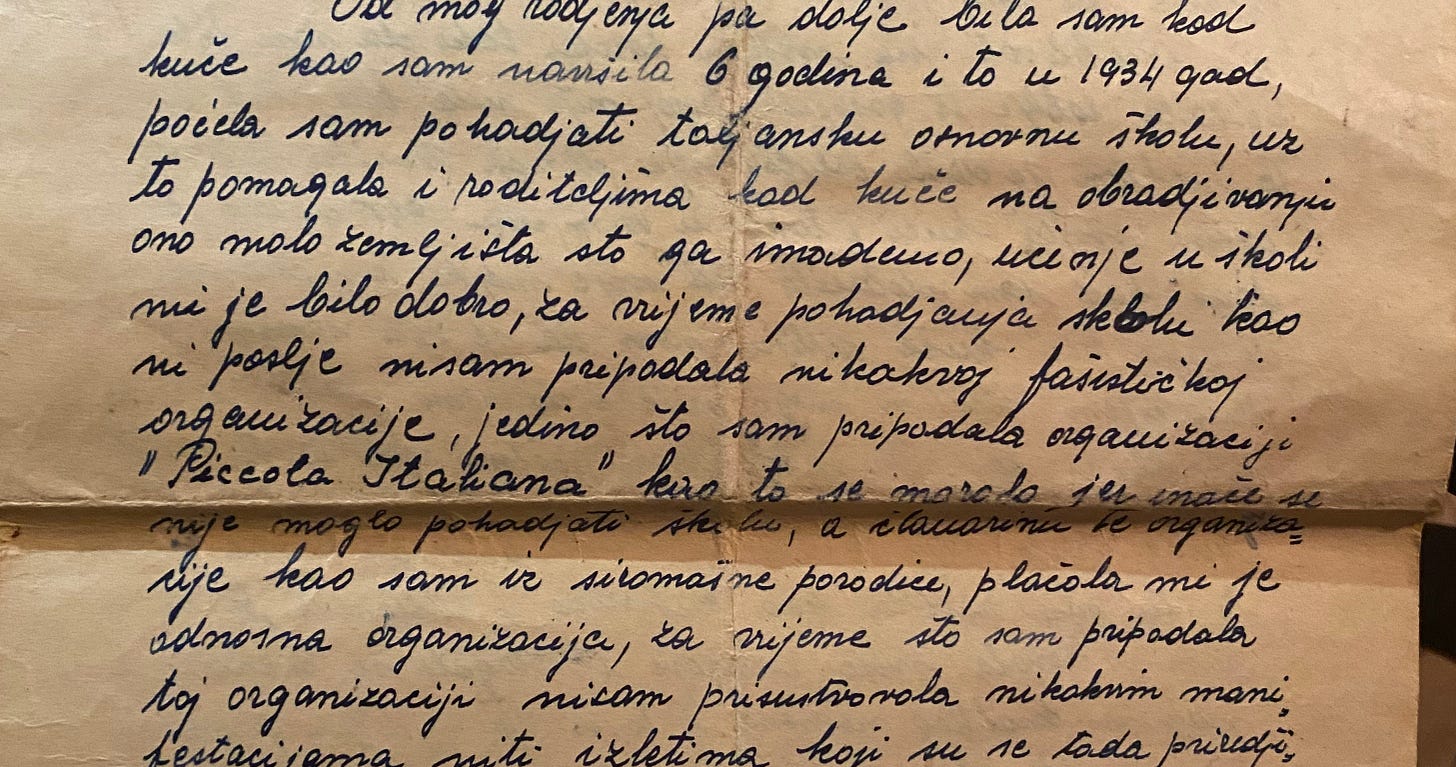 Od mog rodjenja pa dolje bila sam kod
kuće kao sam navršila 6 godina i to u 1934 god,
počela sam pohadjati taljansku osnovnu školu, uz
to pomagala i roditeljima kod kuće na obradjivanju
ono malo zemljišta sto ga imademo, učenje u školi
mi je bilo dobro, za vrijeme pohadjanja školu kao
ni poslje nisam pripadala nikakvoj fašističkoj
organizacije, jedino što sam pripadala organizaciji
"Piccola Italiana" kao to se moralo jer inače se
nije moglo pohadjati školu, a članarinu te organiza=
cije kao sam iz siromašne porodice, plaćala mi je
odnosna organizacija, za vrijeme što sam pripadala
toj organizaciji nisam prisustvovala nikakvim mani„
festacijama niti izletima koji su se tada priredji„